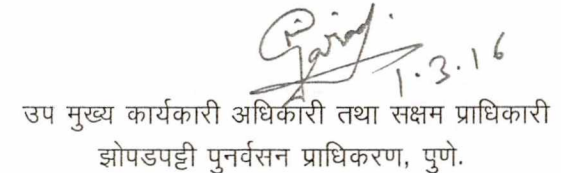 1.3.16
उप मुख्य कार्यकारी अधिकारी तथा सक्षम प्राधिकारी
झोपडपट्टी पुनर्वसन प्राधिकरण, पुणे.